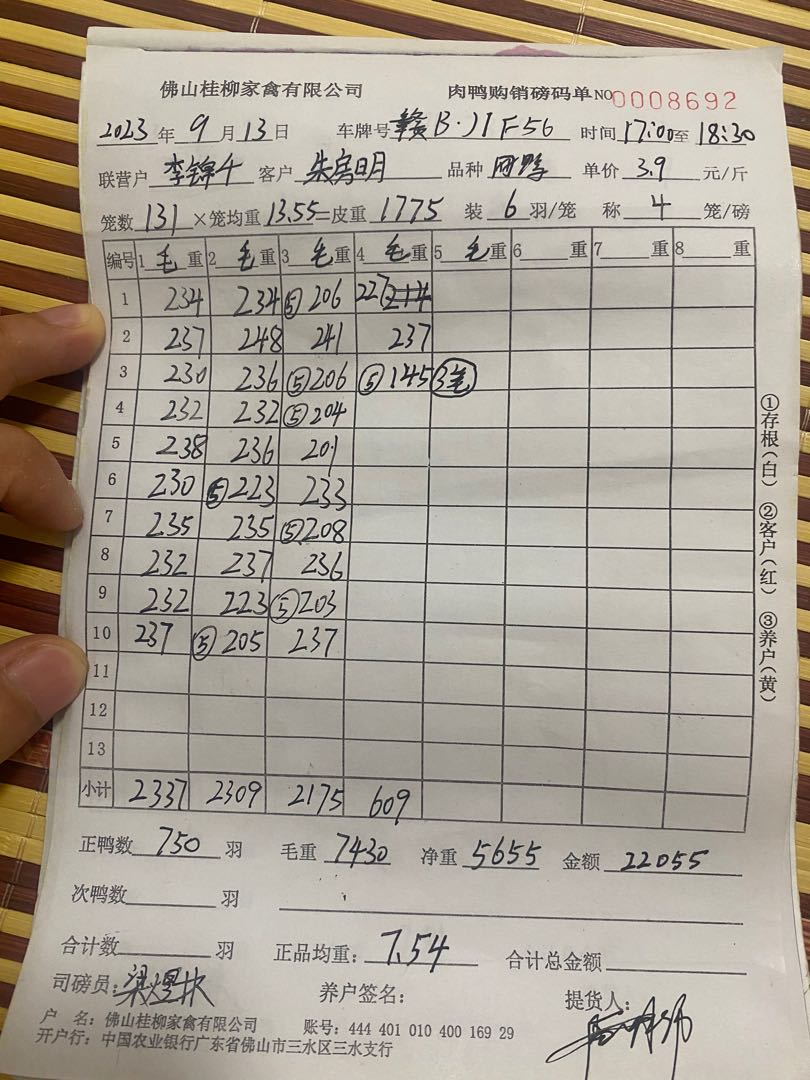 佛山桂柳家禽有限公司 肉鸭购销磅码单 NO 0008692
2023年9月13日 车牌号 赣B·J1F56 时间17:00至18:30
联营户 李锦 客户 朱房明 品种 单价 3.9 元/斤
笼数 131 ×笼均重 13.55 =皮重 1775 装 6 羽/笼 称 4 笼/磅
编号 1 毛 重 2 毛 重 3 毛 重 4 毛 重 5 毛 重 6 重 7 重 8 重
1 234 234 ⑤206 227 214
2 237 248 241 237
3 230 236 ⑤206 ⑤145 3笼
4 232 232 ⑤204
5 238 236 201
6 230 ⑤223 233
7 235 235 ⑤208
8 232 237 236
9 232 223 ⑤203
10 237 ⑤205 237
11
12
13
小计 2337 2309 2175 609
正鸭数 750 羽 毛重 7430 净重 5655 金额 22055
次鸭数 羽
合计数 羽 正品均重: 7.54 合计总金额
司磅员: 梁煜林 养户签名: 提货人:
户 名: 佛山桂柳家禽有限公司 账号: 444 401 010 400 169 29
开户行: 中国农业银行广东省佛山市三水区三水支行
①存根(白) ②客户(红) ③养户(黄)